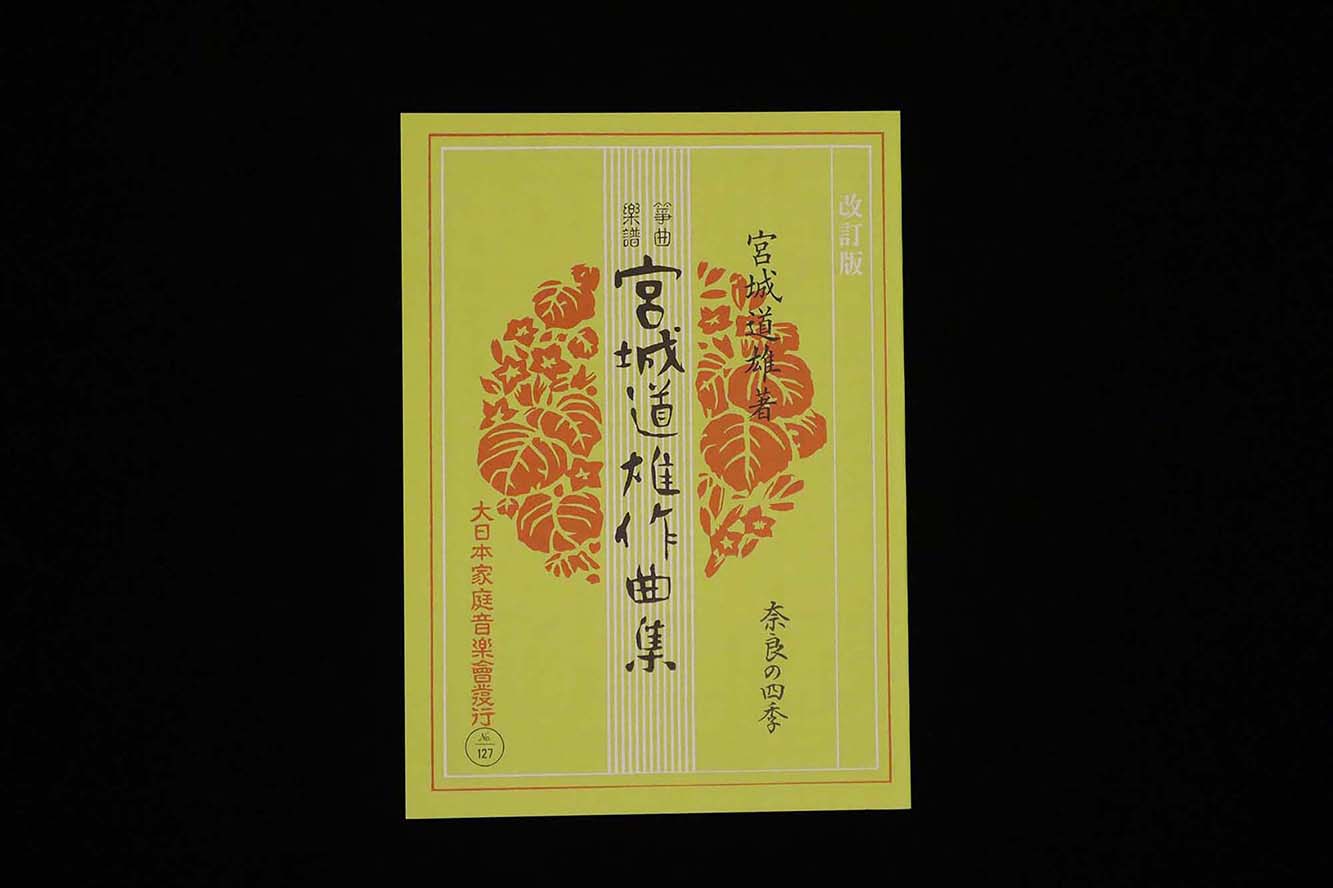 改訂版
宮城道雄著
奈良の四季
箏曲
樂譜
宮城道雄作曲集
大日本家庭音楽會發行
No.
127